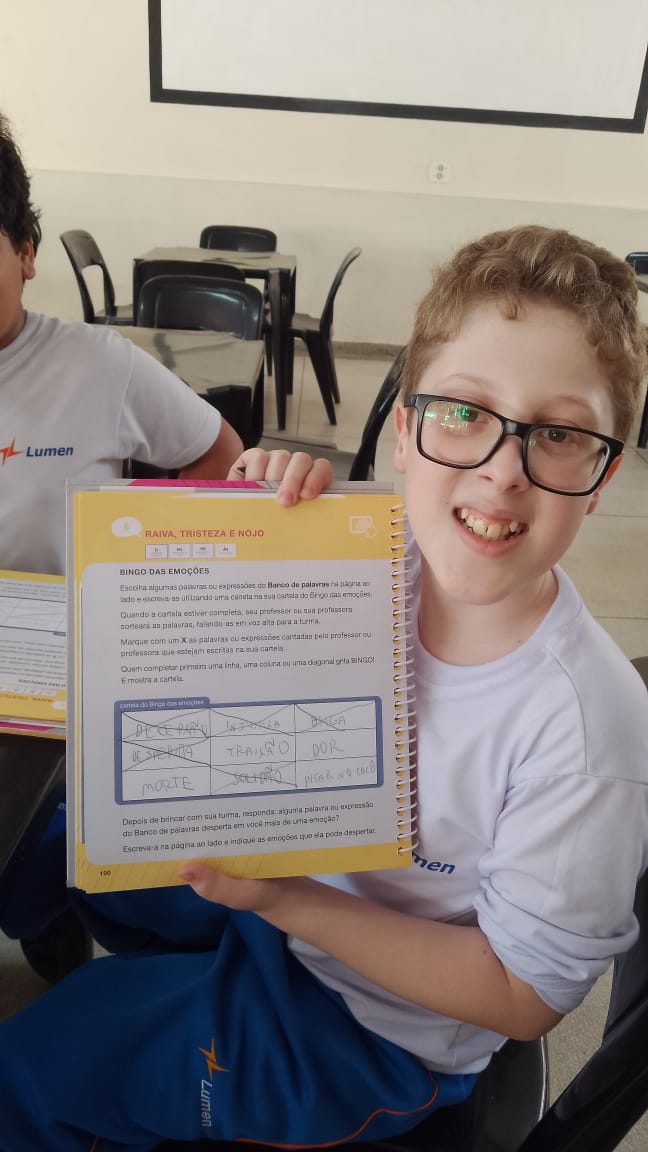 Lumen
6
RAIVA, TRISTEZA E NOJO
BINGO DAS EMOÇÕES
Escolha algumas palavras ou expressões do Banco de palavras na página ao
lado e escreva-as utilizando uma caneta na sua cartela do Bingo das emoções.
Quando a cartela estiver completa, seu professor ou sua professora
sorteará as palavras, falando-as em voz alta para a turma.
Marque com um X as palavras ou expressões cantadas pelo professor ou
professora que estejam escritas na sua cartela.
Quem completar primeiro uma linha, uma coluna ou uma diagonal grita BINGO!
E mostra a cartela.
cartela do Bingo das emoções
DECEPÇÃO INJUSTIÇA BRIGA
TRAIÇÃO DOR
MORTE SOLIDÃO PISAR NO COCÔ
Depois de brincar com sua turma, responda: alguma palavra ou expressão
do Banco de palavras desperta em você mais de uma emoção?
Escreva-a na página ao lado e indique as emoções que ela pode despertar.
100
men
Lumen